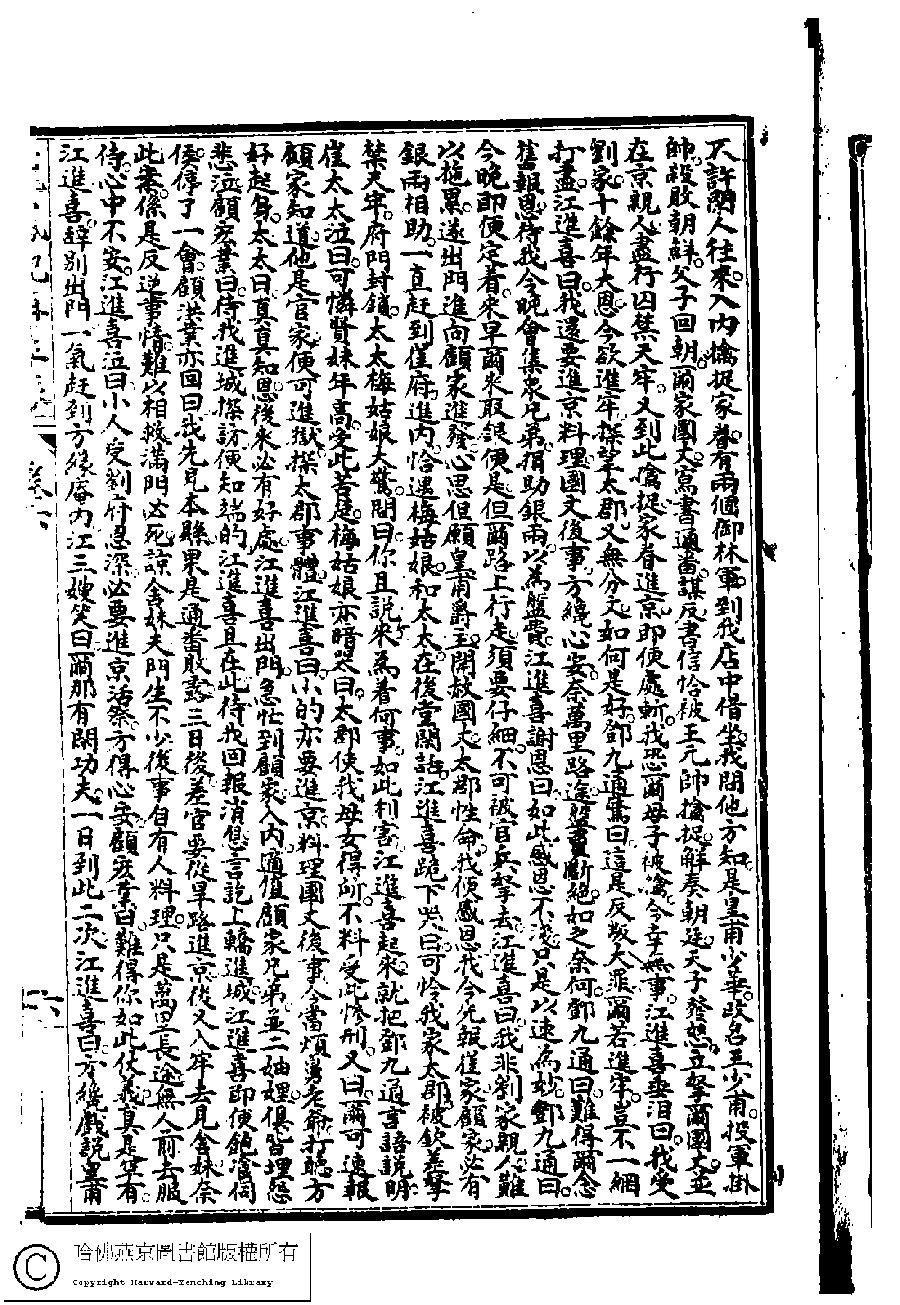 不許閑人往來。入內擒捉家眷。有兩個御林軍。到我店中借坐。我問他。方知是皇甫少華。改名王少甫。投軍掛
帥。設敗朝鮮。父子回朝。爾家國丈。寫書通番。謀反書信恰被王元帥擒捉。解奏朝廷。天子發怒。立拏爾國丈。並
在京親人。盡行囚禁天牢。又到此擒捉家眷進京。即便處斬。我恐爾母子被擒。今幸無事。江進喜垂泪曰。我受
劉家十餘年大恩。今欲進牢探望太郡。又無分文。如何是好。鄧九通驚曰。這是反叛大罪。爾若進牢。豈不一網
打盡。江進喜曰。我還要進京料理國丈後事。方纔心安。奈萬里路途。盤費斷絕。如之奈何。鄧九通曰。難得爾念
舊報恩。待我今晚會集衆兄弟。捐助銀兩。以為盤費。江進喜謝恩曰。如此感恩不淺。只是以速為妙。鄧九通曰。
今晚即便定着。來早爾來取銀便是。但爾路上行走。須要仔細。不可被官兵拏去。江進喜曰。我非劉家親人。難
以拖累。遂出門進向顧家進發。心思但願皇甫爵王開赦國丈太郡性命。我便感恩。我今先報崔家顧家。必有
銀兩相助。一直趕到崔府進內。恰遇梅姑娘和太太在後堂閑話。江進喜跪下哭曰。可怜我家太郡被欽差拏
禁天牢。府門封鎖。太太梅姑娘大驚。問曰。你且說來。為着何事。如此利害。江進喜起來。就把鄧九通言語說明。
崔太太泣曰。可憐賢妹年高。受此苦楚。梅姑娘亦暗哭曰。太郡使我母女得所。不料受此慘刑。又曰。爾可速報
顧家知道。他是官家。便可進獄探太郡事體。江進喜曰。小的亦要進京料理國丈後事。今當煩舅老爺打聽。方
好起身。太太曰。真真知恩。後來必有好處。江進喜出門。急忙到顧家入內。適值顧家兄弟。並二妯娌俱皆埋怨
悲泣。顧宏業曰。待我進城探訪。便知端的。江進喜且在此待我回報消息。言訖上轎進城。江進喜即便飽食伺
候。停了一會。顧洪業亦回曰。我先見本縣。果是通番敗露。三日後差官要從旱路進京。後又入牢去見舍妹。奈
此案係是反逆事情。難以相救。滿門必死。諒舍妹夫門生不少。後事自有人料理。只是萬里長途。無人前去服
侍。心中不安。江進喜泣曰。小人受劉府恩深。必要進京活祭。方得心安。顧宏業曰。難得你如此仗義。真是罕有。
江進喜辭別出門。一氣趕到万緣庵內。江三嫂笑曰。爾那有閑功夫。一日到此二次。江進喜曰。方纔戲說皇甫
卷六
六
哈佛燕京圖書館版權所有
Copyright Harvard-Yenching Library